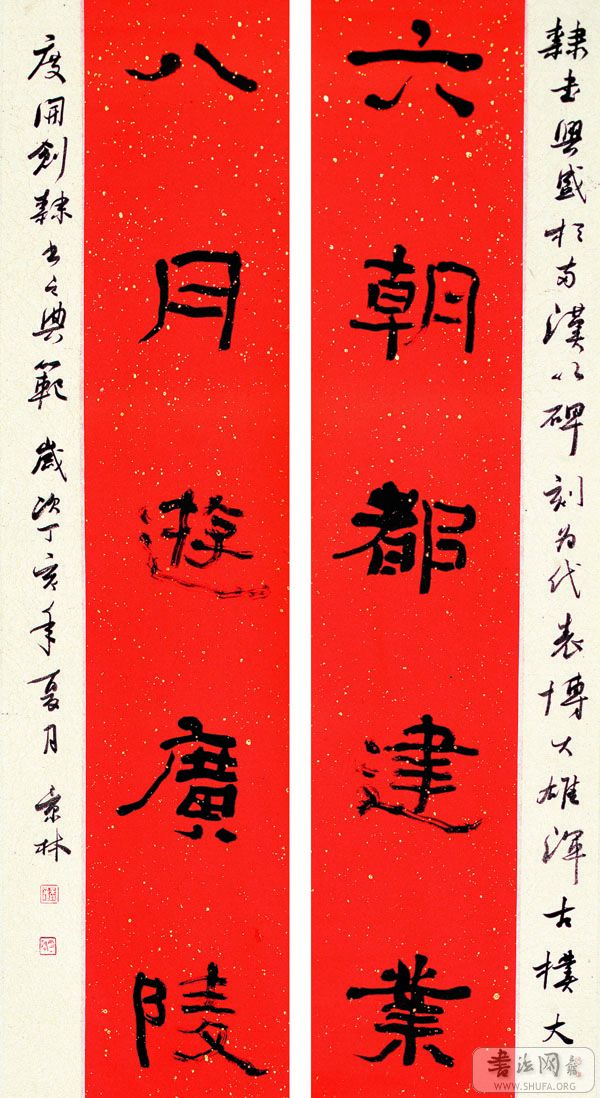 隸書興盛於两漢以碑刻为代表博大雄渾古樸大
六朝都建業
八月遊廣陵
度開創隸书之典範 歲次丁亥年夏月 林
書法网
WWW.SHUFA.ORG